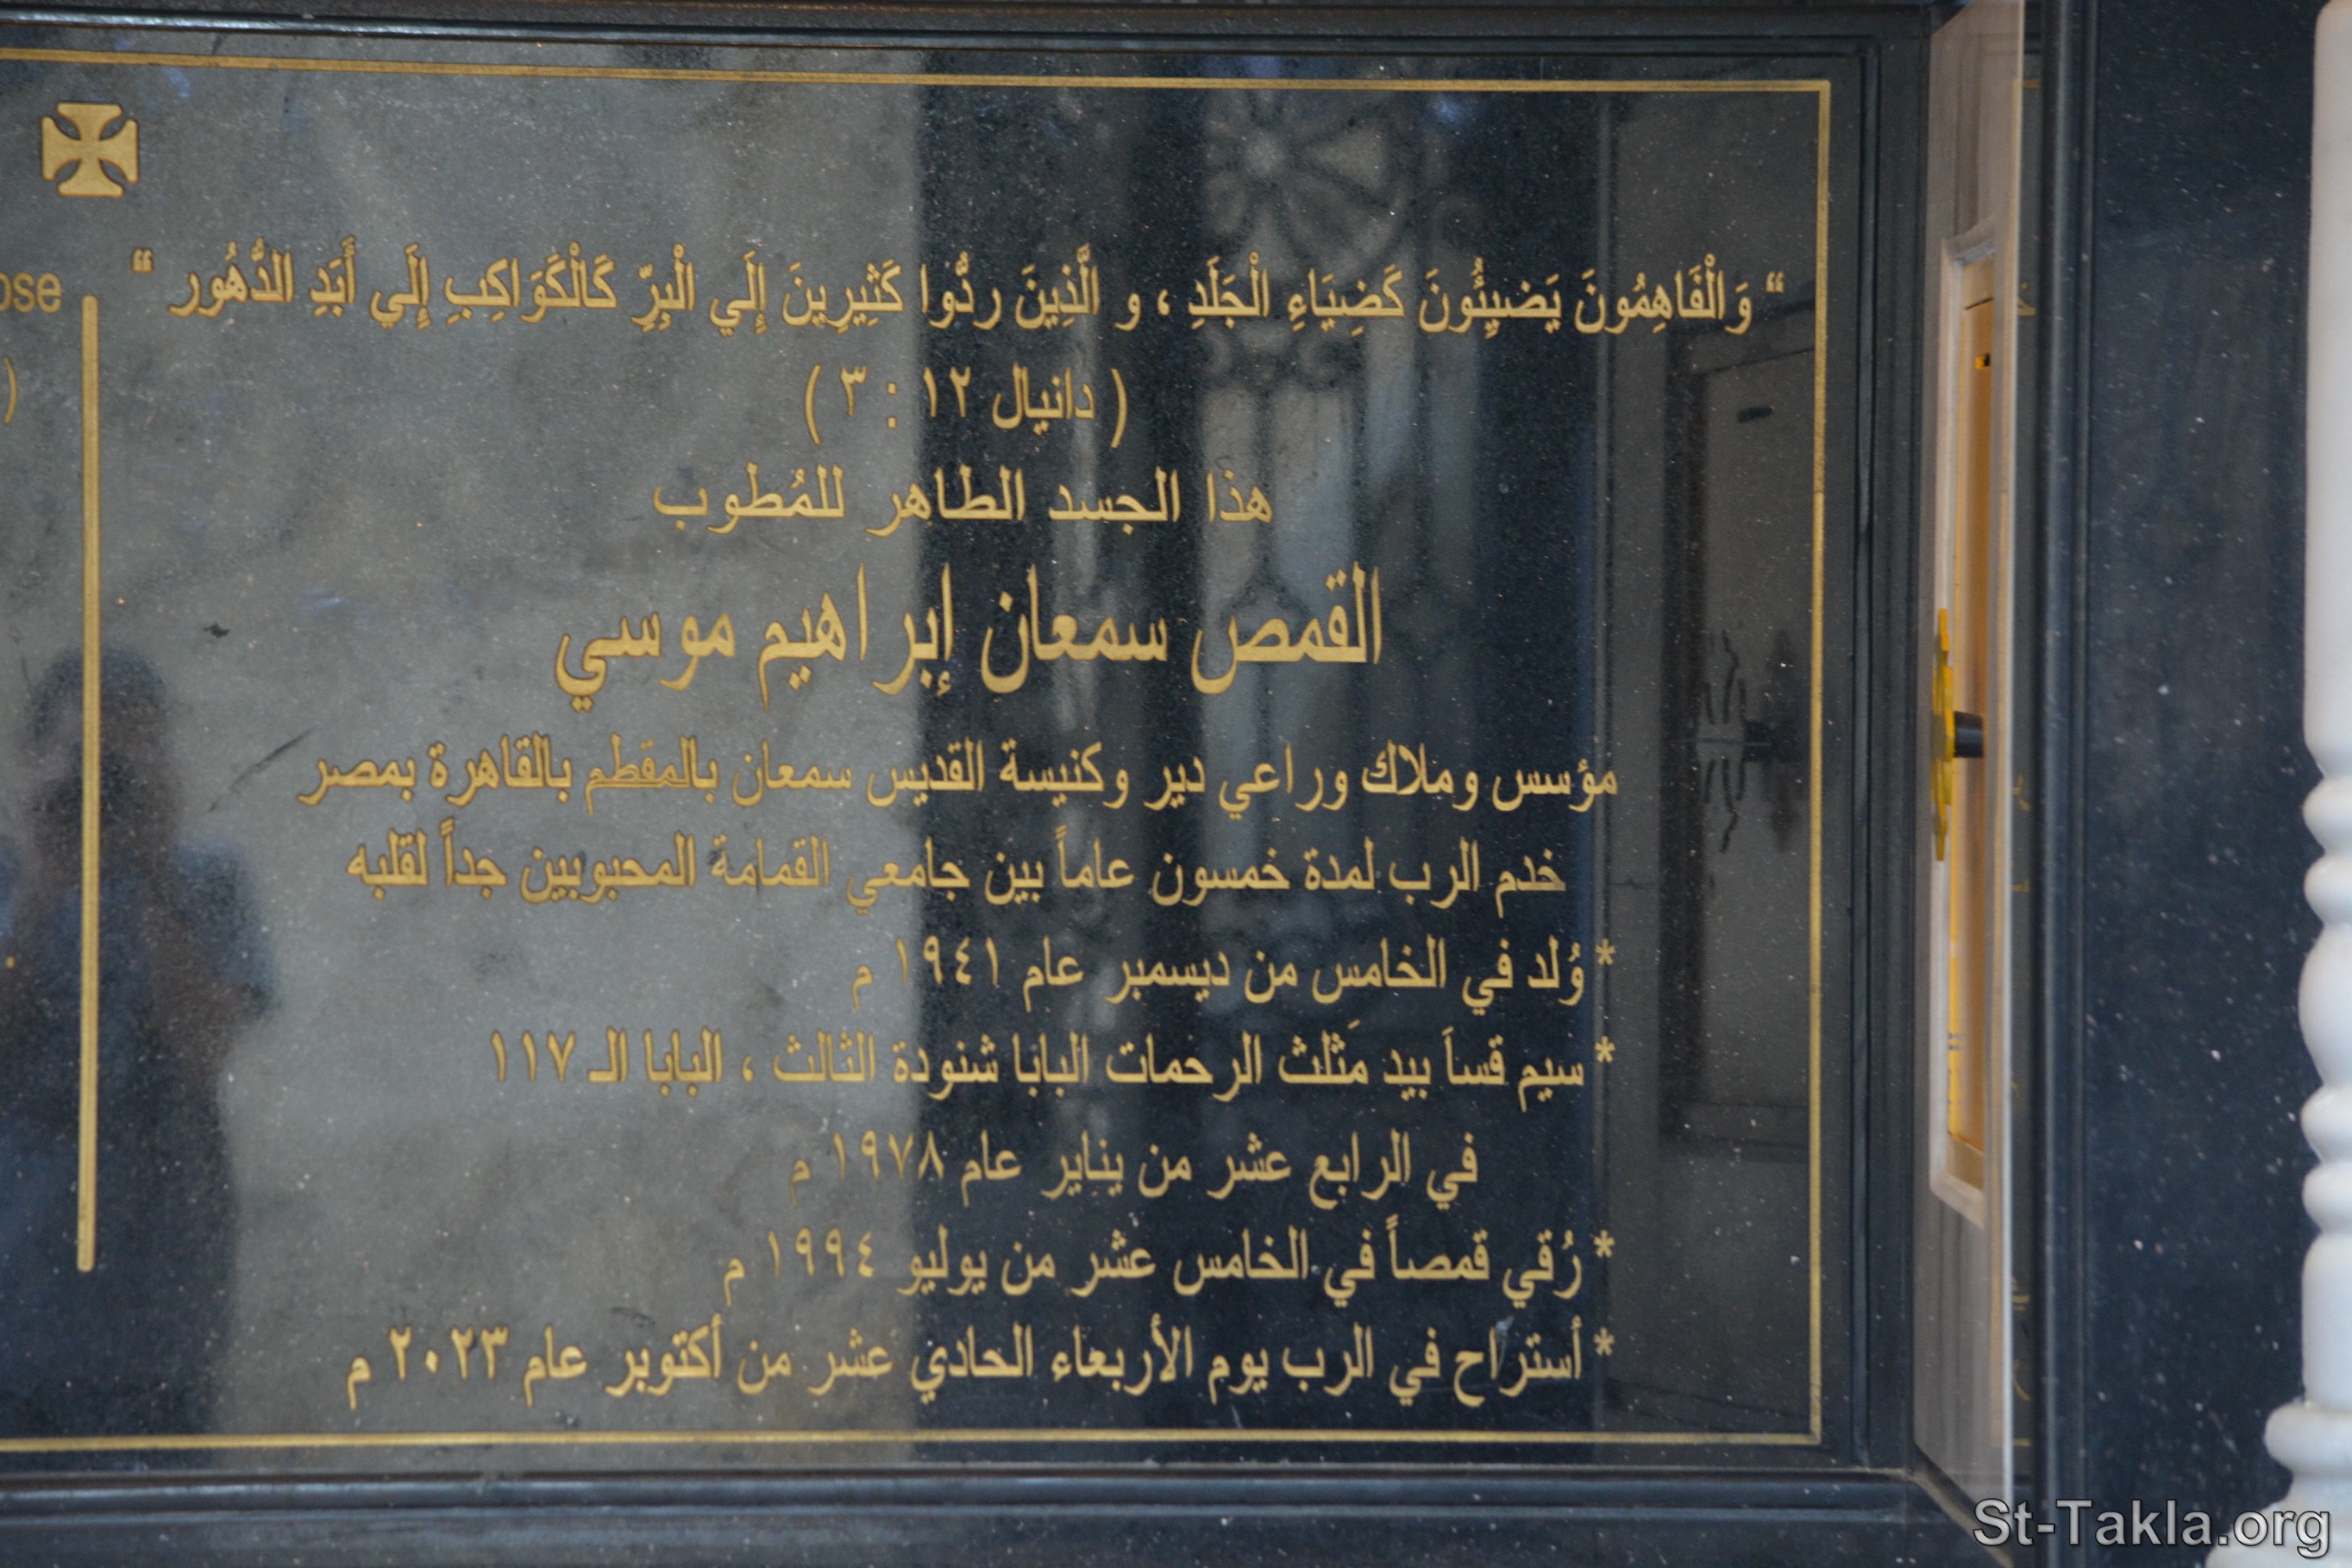 “ وَالْفَاهِمُونَ يَضيِئُونَ كَضِيَاءِ الْجَلَدِ ، و الَّذِينَ ردُّوا كَثِيرِينَ إِلَي الْبِرِّ كَالْكَوَاكِبِ إِلَي أَبَدِ الدُّهُور “
( دانيال ١٢ : ٣ )
هذا الجسد الطاهر للمُطوب
القمص سمعان إبراهيم موسي
مؤسس وملاك وراعي دير وكنيسة القديس سمعان بالمقطم بالقاهرة بمصر
خدم الرب لمدة خمسون عاماً بين جامعي القمامة المحبوبين جداً لقلبه
* وُلد في الخامس من ديسمبر عام ١٩٤١ م
* سيم قساَ بيد مَثلث الرحمات البابا شنودة الثالث ، البابا الـ ١١٧
في الرابع عشر من يناير عام ١٩٧٨ م
* رُقي قمصاً في الخامس عشر من يوليو ١٩٩٤ م
* أستراح في الرب يوم الأربعاء الحادي عشر من أكتوبر عام ٢٠٢٣ م
St-Takla.org